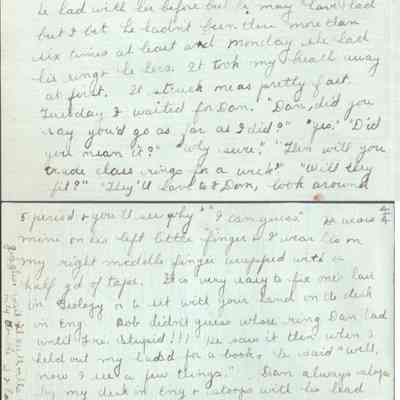 he had with her before but he may have had
but I bet he hadn't been there more than
six times at least and Monday she had
his ring & he hers. It took my breath away
at first. It struck me as pretty fast.
Tuesday I waited for Dan. "Dan, did you
say you'd go as far as I did?" "Yes." "Did
you mean it?" "Why sure." "Then will you
trade class rings for a week?" "Will they
fit?" "They'll have to & Dan, look around
5 period & you'll see why" "I can guess" He wears
mine on his left little finger & I wear his on
my right middle finger wrapped with a
half yd of tape. It is very easy to fix one's hair
in Biology or to sit with your hand on the desk
in Eng. Bob didn't guess whose ring Dan had
until Fri. Stupid!!! He saw it then when I
held out my hand for a book & he said "Well,
now I see a few things." Dan always stops
by my desk in Eng & stoops with his head